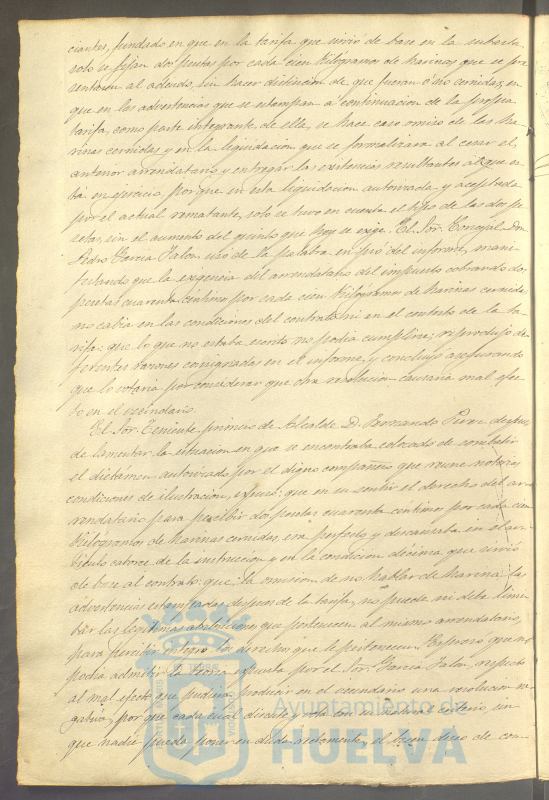 ciantes, fundado en que en la tarifa que sirvió de base en la subasta
solo se fijan dos pesetas por cada cien kilógramos de harinas que se pre-
sentaren al adeudo, sin hacer distincion de que fueran ó nó cernidas; en
que en las advertencias que se estampan á continuacion de la propia
tarifa, como parte integrante de ella, se hace caso omiso de las ha-
rinas cernidas y en la liquidacion que se formalizara al cesar el
anterior arrendatario y entregar las existencias resultantes al que es-
tá en ejercicio, porque en esta liquidacion autorizada y aceptada
por el actual rematante, solo se tuvo en cuenta el tipo de las dos pe-
setas, sin el aumento del quinto que hoy se exige. El Sor. Concejal Don
Pedro Garcia Jalon usó de la palabra en pró del informe, mani-
festando que la exigencia del arrendatario del impuesto cobrando dos
pesetas cuarenta centimos por cada cien kilógramos de harinas cernidas
no cabia en las condiciones del contrato ni en el contesto de la ta-
rifa: que lo que no estaba escrito no podia cumplirse; reprodujo di-
ferentes razones consignadas en el informe y concluyó asegurando
que lo votaria por considerar que otra resolucion causaria mal efec-
to en el vecindario.
El Sor. Teniente primero de Alcalde D. Fernando Perez despues
de lamentar la situacion en que se encontraba colocado de combatir
el dictámen autorizado por el digno compañero que reune notorias
condiciones de ilustracion, expuso: que en su sentir el derecho del ar-
rendatario para percibir dos pesetas cuarenta centimos por cada cien
kilógramos de harinas cernidas, era perfecto y descansaba en el ar-
tículo catorce de la instruccion y en la condicion decima que sirvió
de base al contrato: que la omision de no hablar de harina las
advertencias estampadas despues de la tarifa, no puede ni debe limi-
tar las legítimas atribuciones que pertenecen al mismo arrendatario,
para percibir íntegro los derechos que le pertenecen. Expreso que no
podia admitir la teoria expuesta por el Sor. Garcia Jalon, respecto
al mal efecto que pudiera producir en el vecindario una resolucion ne-
gativa, por que cada cual discute y vota con su natural criterio sin
que nadie pueda poner en duda rectamente, el buen deseo de con-
Ayuntamiento de
HUELVA